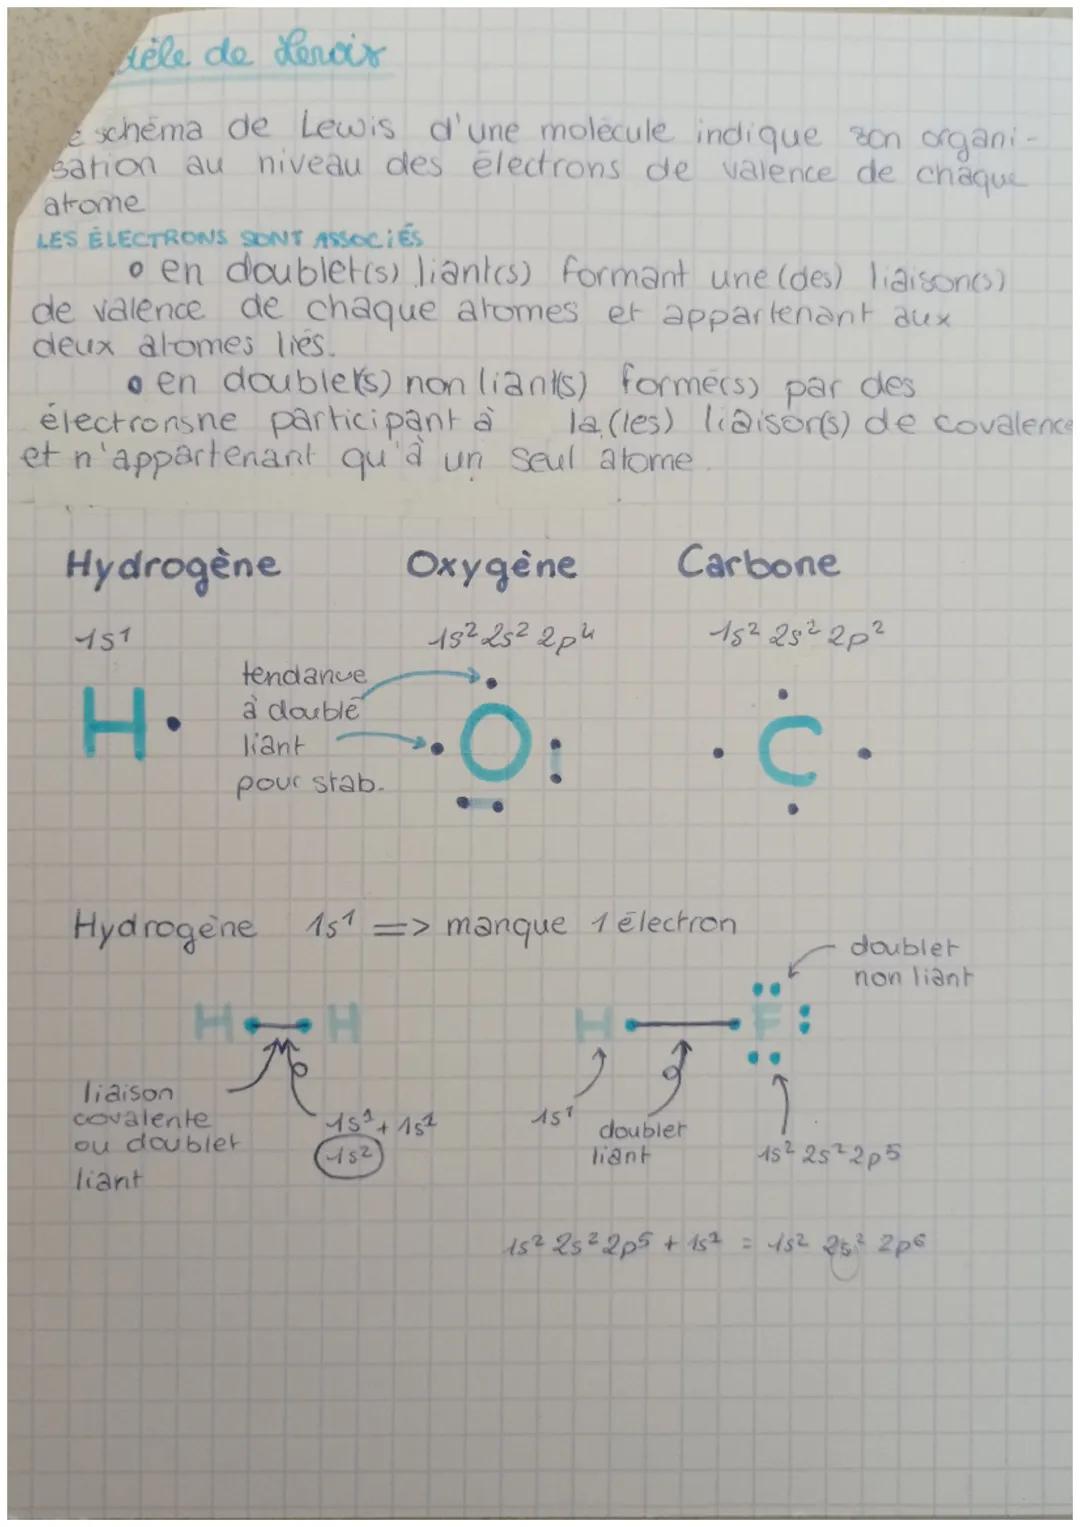 dèle de Lewis
e schéma de Lewis d'une molécule indique son organi-
sation au niveau des électrons de valence de chaque
atome
LES ÉLECTRONS SONT ASSOCIÉS
en doublet(s) liant(s) formant une (des) liaison(s)
de valence de chaque atomes et appartenant aux
deux atomes liés.
en doublet(s) non liant(s) formé(s) par des
électronsne participant à la (les) liaison(s) de covalence
et n'appartenant qu'à un seul atome.
Hydrogène Oxygène Carbone
1s¹ 1s² 2s² 2p⁴ 1s² 2s² 2p²
tendance
à double
liant
pour stab.
H O C
Hydrogène 1s¹ => manque 1 électron
doublet
non liant
H H H F
liaison
covalente
ou doublet
liant
1s¹ + 1s¹
1s²
1s¹
doublet
liant
1s² 2s² 2p⁵
1s² 2s² 2p⁵ + 1s¹ = 1s² 2s² 2p⁶